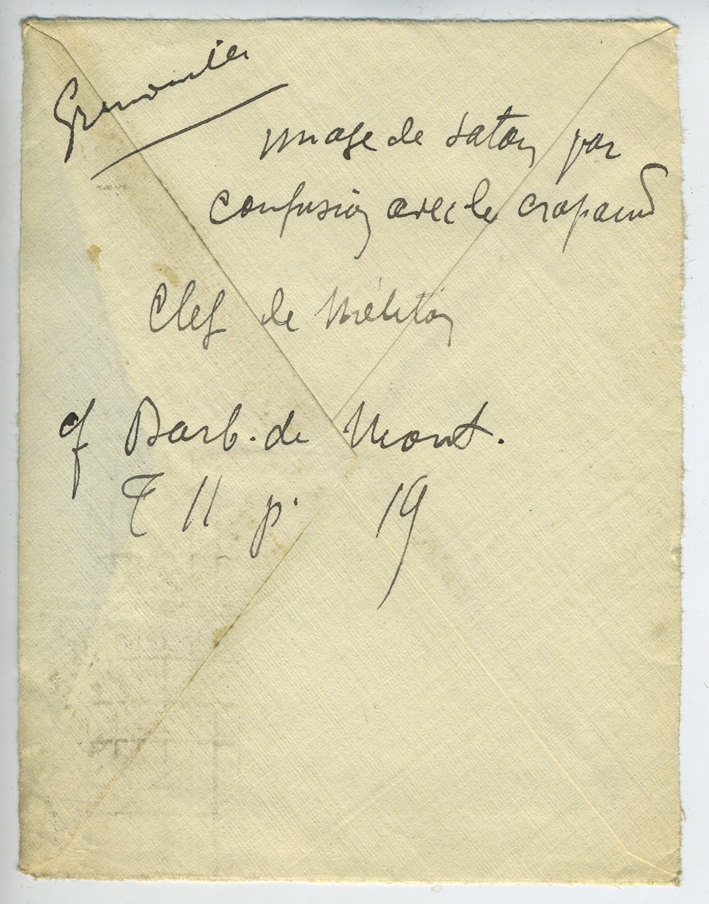 Grenouilles
image de satan par
confusion avec le crapaud
Clef de Méliton
cf Barb. de Mont.
T II p. 19